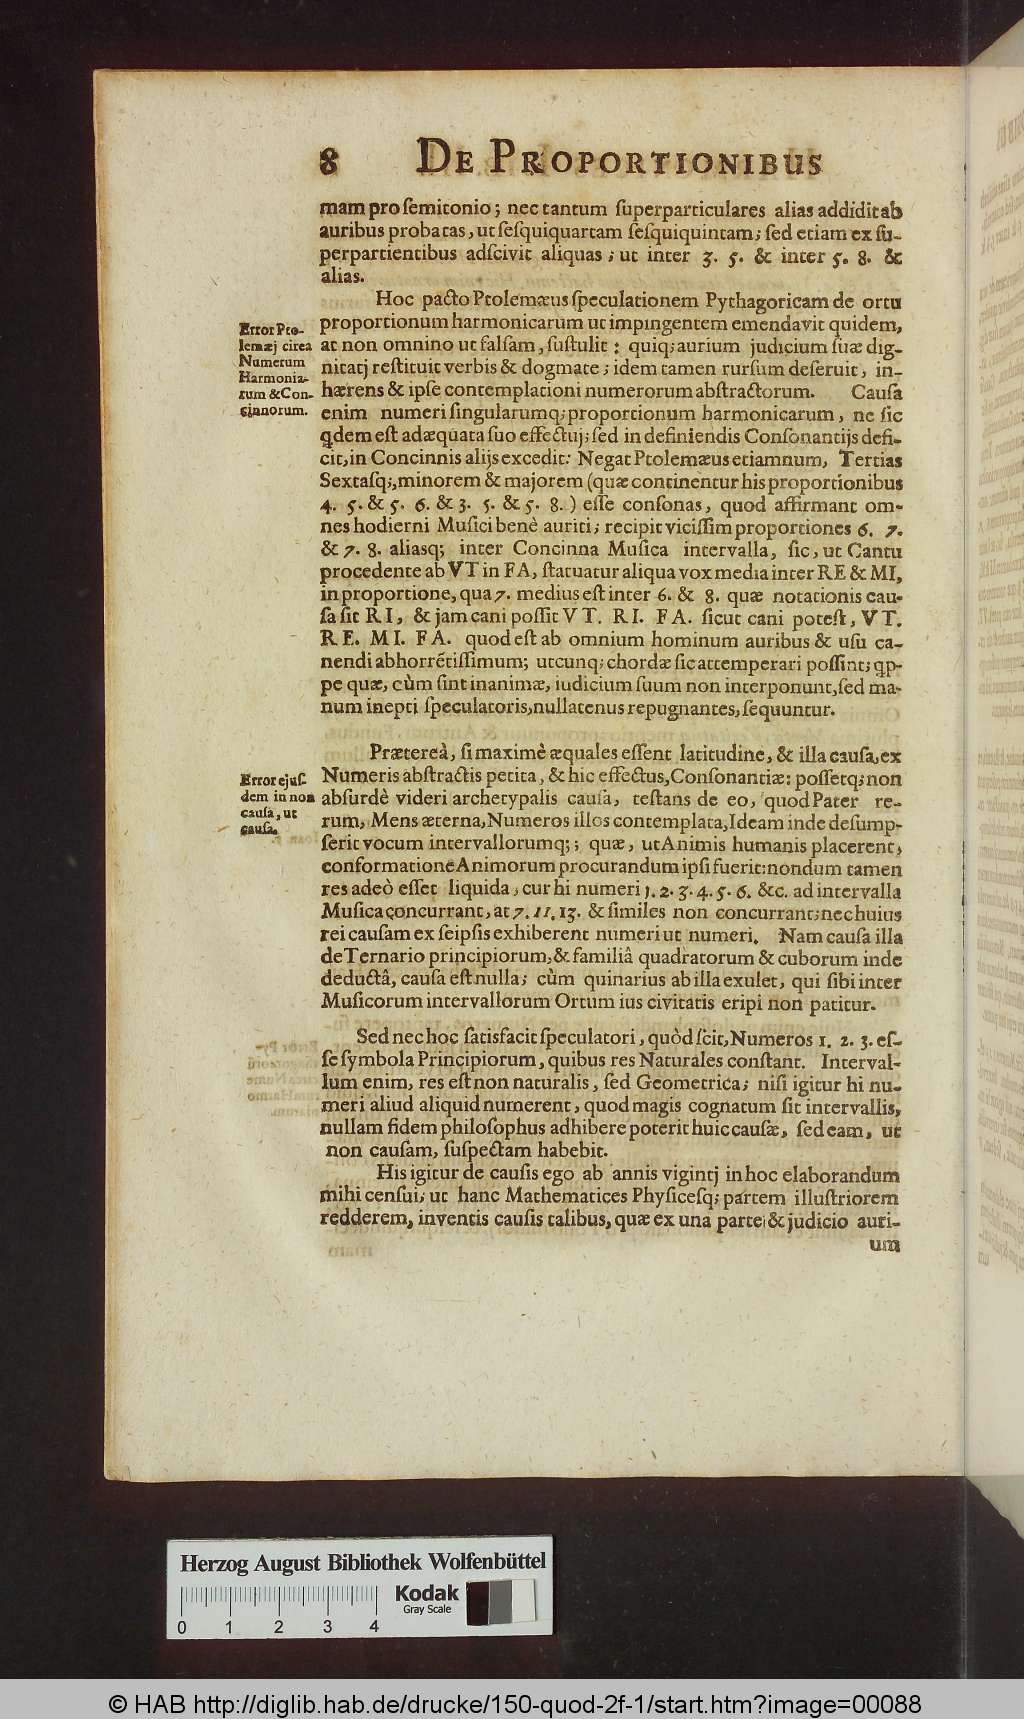 8 DE PROPORTIONIBUS
mam pro ſemitonio; nec tantum ſuperparticulares alias addidit ab
auribus probatas, ut ſeſquiquartam ſeſquiquintam; ſed etiam ex ſu-
perpartientibus adſcivit aliquas; ut inter 3. 5. & inter 5. 8. &
alias.
Hoc pacto Ptolemæus ſpeculationem Pythagoricam de ortu
proportionum harmonicarum ut impingentem emendavit quidem,
at non omnino ut falſam, ſuſtulit: quiq; aurium judicium ſuæ dig-
nitatj reſtituit verbis & dogmate; idem tamen rurſum deſeruit, in-
hærens & ipſe contemplationi numerorum abſtractorum. Cauſa
enim numeri ſingularumq; proportionum harmonicarum, ne ſic
qdem eſt adæquata ſuo effectuj; ſed in definiendis Conſonantijs defi-
cit, in Concinnis alijs excedit: Negat Ptolemæus etiamnum, Tertias
Sextaſq;, minorem & majorem (quæ continentur his proportionibus
4. 5. & 5. 6. & 3. 5. & 5. 8.) eſſe conſonas, quod affirmant om-
nes hodierni Muſici benè auriti; recipit viciſſim proportiones 6. 7.
& 7. 8. aliasq; inter Concinna Muſica intervalla, ſic, ut Cantu
procedente ab VT in FA, ſtatuatur aliqua vox media inter RE & MI,
in proportione, qua 7. medius eſt inter 6. & 8. quæ notationis cau-
ſa ſit RI, & jam cani poſſit VT. RI. FA. ſicut cani poteſt, VT.
RE. MI. FA. quod eſt ab omnium hominum auribus & uſu ca-
nendi abhorrẽtiſſimum; utcunq; chordæ ſic attemperari poſſint; qp-
pe quæ, cùm ſint inanimæ, iudicium ſuum non interponunt, ſed ma-
num inepti ſpeculatoris, nullatenus repugnantes, ſequuntur.
Error Pto-
lemæj circa
Numerum
Harmonia-
rum & Con-
cinnorum.
Prætereà, ſi maximè æquales eſſent latitudine, & illa cauſa, ex
Numeris abſtractis petita, & hic effectus, Conſonantiæ: poſſetq; non
abſurdè videri archetypalis cauſa, teſtans de eo, quod Pater re-
rum, Mens æterna, Numeros illos contemplata, Ideam inde deſump-
ſerit vocum intervallorumq;; quæ, ut Animis humanis placerent,
conformatione Animorum procurandum ipſi fuerit: nondum tamen
res adeò eſſet liquida, cur hi numeri 1. 2. 3. 4. 5. 6. &c. ad intervalla
Muſica concurrant, at 7. 11. 13. & ſimiles non concurrant; nec huius
rei cauſam ex ſeipſis exhiberent numeri ut numeri. Nam cauſa illa
de Ternario principiorum, & familiâ quadratorum & cuborum inde
deductâ, cauſa eſt nulla; cùm quinarius ab illa exulet, qui ſibi inter
Muſicorum intervallorum Ortum ius civitatis eripi non patitur.
Error ejuſ-
dem in non
cauſa, ut
cauſa.
Sed nec hoc ſatisfacit ſpeculatori, quòd ſcit, Numeros 1. 2. 3. eſ-
ſe ſymbola Principiorum, quibus res Naturales conſtant. Interval-
lum enim, res eſt non naturalis, ſed Geometrica; niſi igitur hi nu-
meri aliud aliquid numerent, quod magis cognatum ſit intervallis,
nullam fidem philoſophus adhibere poterit huic cauſæ, ſed eam, ut
non cauſam, ſuſpectam habebit.
His igitur de cauſis ego ab annis vigintj in hoc elaborandum
mihi cenſui, ut hanc Mathematices Phyſiceſq; partem illuſtriorem
redderem, inventis cauſis talibus, quæ ex una parte & judicio auri-
um
Herzog August Bibliothek Wolfenbüttel
Kodak
Gray Scale
0 1 2 3 4
© HAB http://diglib.hab.de/drucke/150-quod-2f-1/start.htm?image=00088